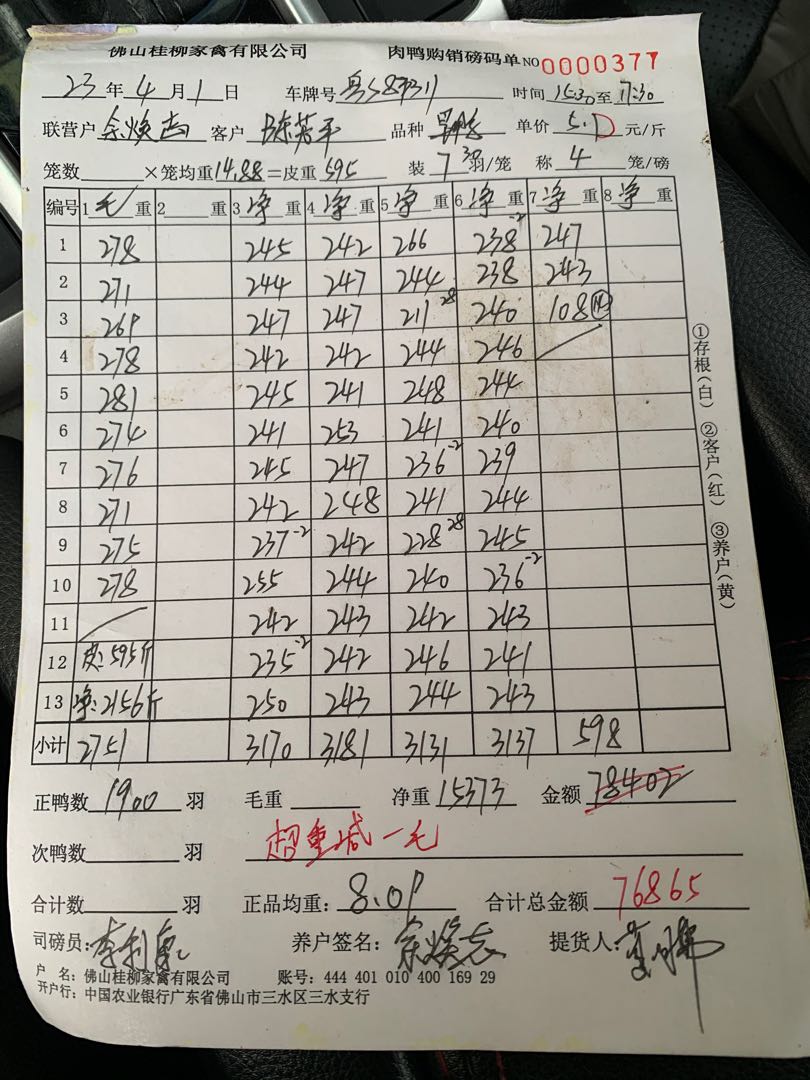 佛山桂柳家禽有限公司 肉鸭购销磅码单 NO 0000377
23年4月1日 车牌号 时间15:30至17:30
联营户 余焕志 客户 陈芳平 品种 单价 5.1 元/斤
笼数 ×笼均重14.88=皮重595 装7 羽/笼 称4笼/磅
编号 1毛重 2重 3净重 4净重 5净重 6净重 7净重 8净重
1 278 245 242 266 238-2 247
2 271 244 247 244 238 243
3 269 247 247 211 28 240 108
4 278 242 242 244 246
5 281 245 241 248 244
6 274 241 253 241 240
7 276 245 247 236-2 239
8 271 242 248 241 244
9 275 237-2 242 228 28 245
10 278 255 244 240 236-2
11 242 243 242 243
12 皮:595斤 235-2 242 246 241
13 净:2156斤 250 243 244 243
小计 2751 3170 3181 3131 3137 598
正鸭数 1900 羽 毛重 净重 15373 金额 78402
次鸭数 羽 超重减一毛
合计数 羽 正品均重: 8.09 合计总金额 76865
司磅员: 养户签名: 余焕志 提货人:
户 名: 佛山桂柳家禽有限公司 账号: 444 401 010 400 169 29
开户行: 中国农业银行广东省佛山市三水区三水支行
①存根(白) ②客户(红) ③养户(黄)